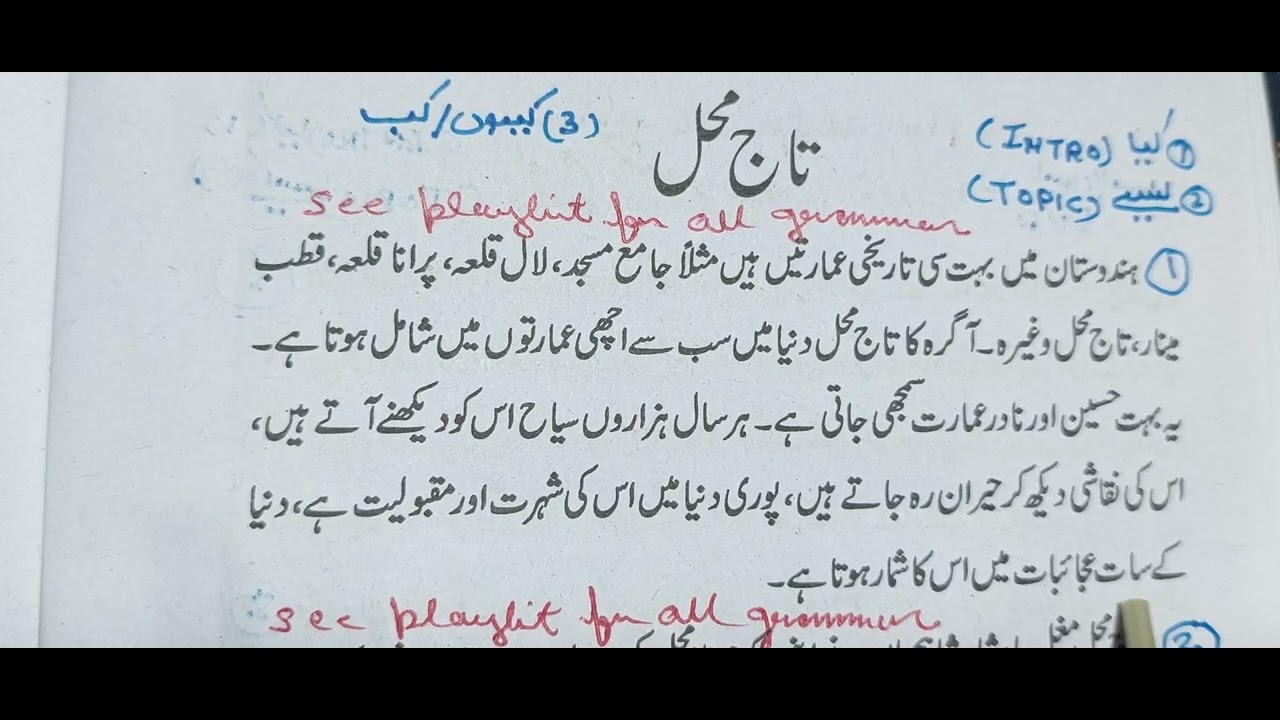 (3) کیوں/کب
تاج محل
① کیا (INTRO)
② کیسے (TOPIC)
See playlist for all grammar
① ہندوستان میں بہت سی تاریخی عمارتیں ہیں مثلاً جامع مسجد، لال قلعہ، پرانا قلعہ، قطب
مینار، تاج محل وغیرہ۔ آگرہ کا تاج محل دنیا میں سب سے اچھی عمارتوں میں شامل ہوتا ہے۔
یہ بہت حسین اور نادر عمارت سمجھی جاتی ہے۔ ہر سال ہزاروں سیاح اس کو دیکھنے آتے ہیں،
اس کی نقاشی دیکھ کر حیران رہ جاتے ہیں، پوری دنیا میں اس کی شہرت اور مقبولیت ہے، دنیا
کے سات عجائبات میں اس کا شمار ہوتا ہے۔
See playlist for all grammar
② محل